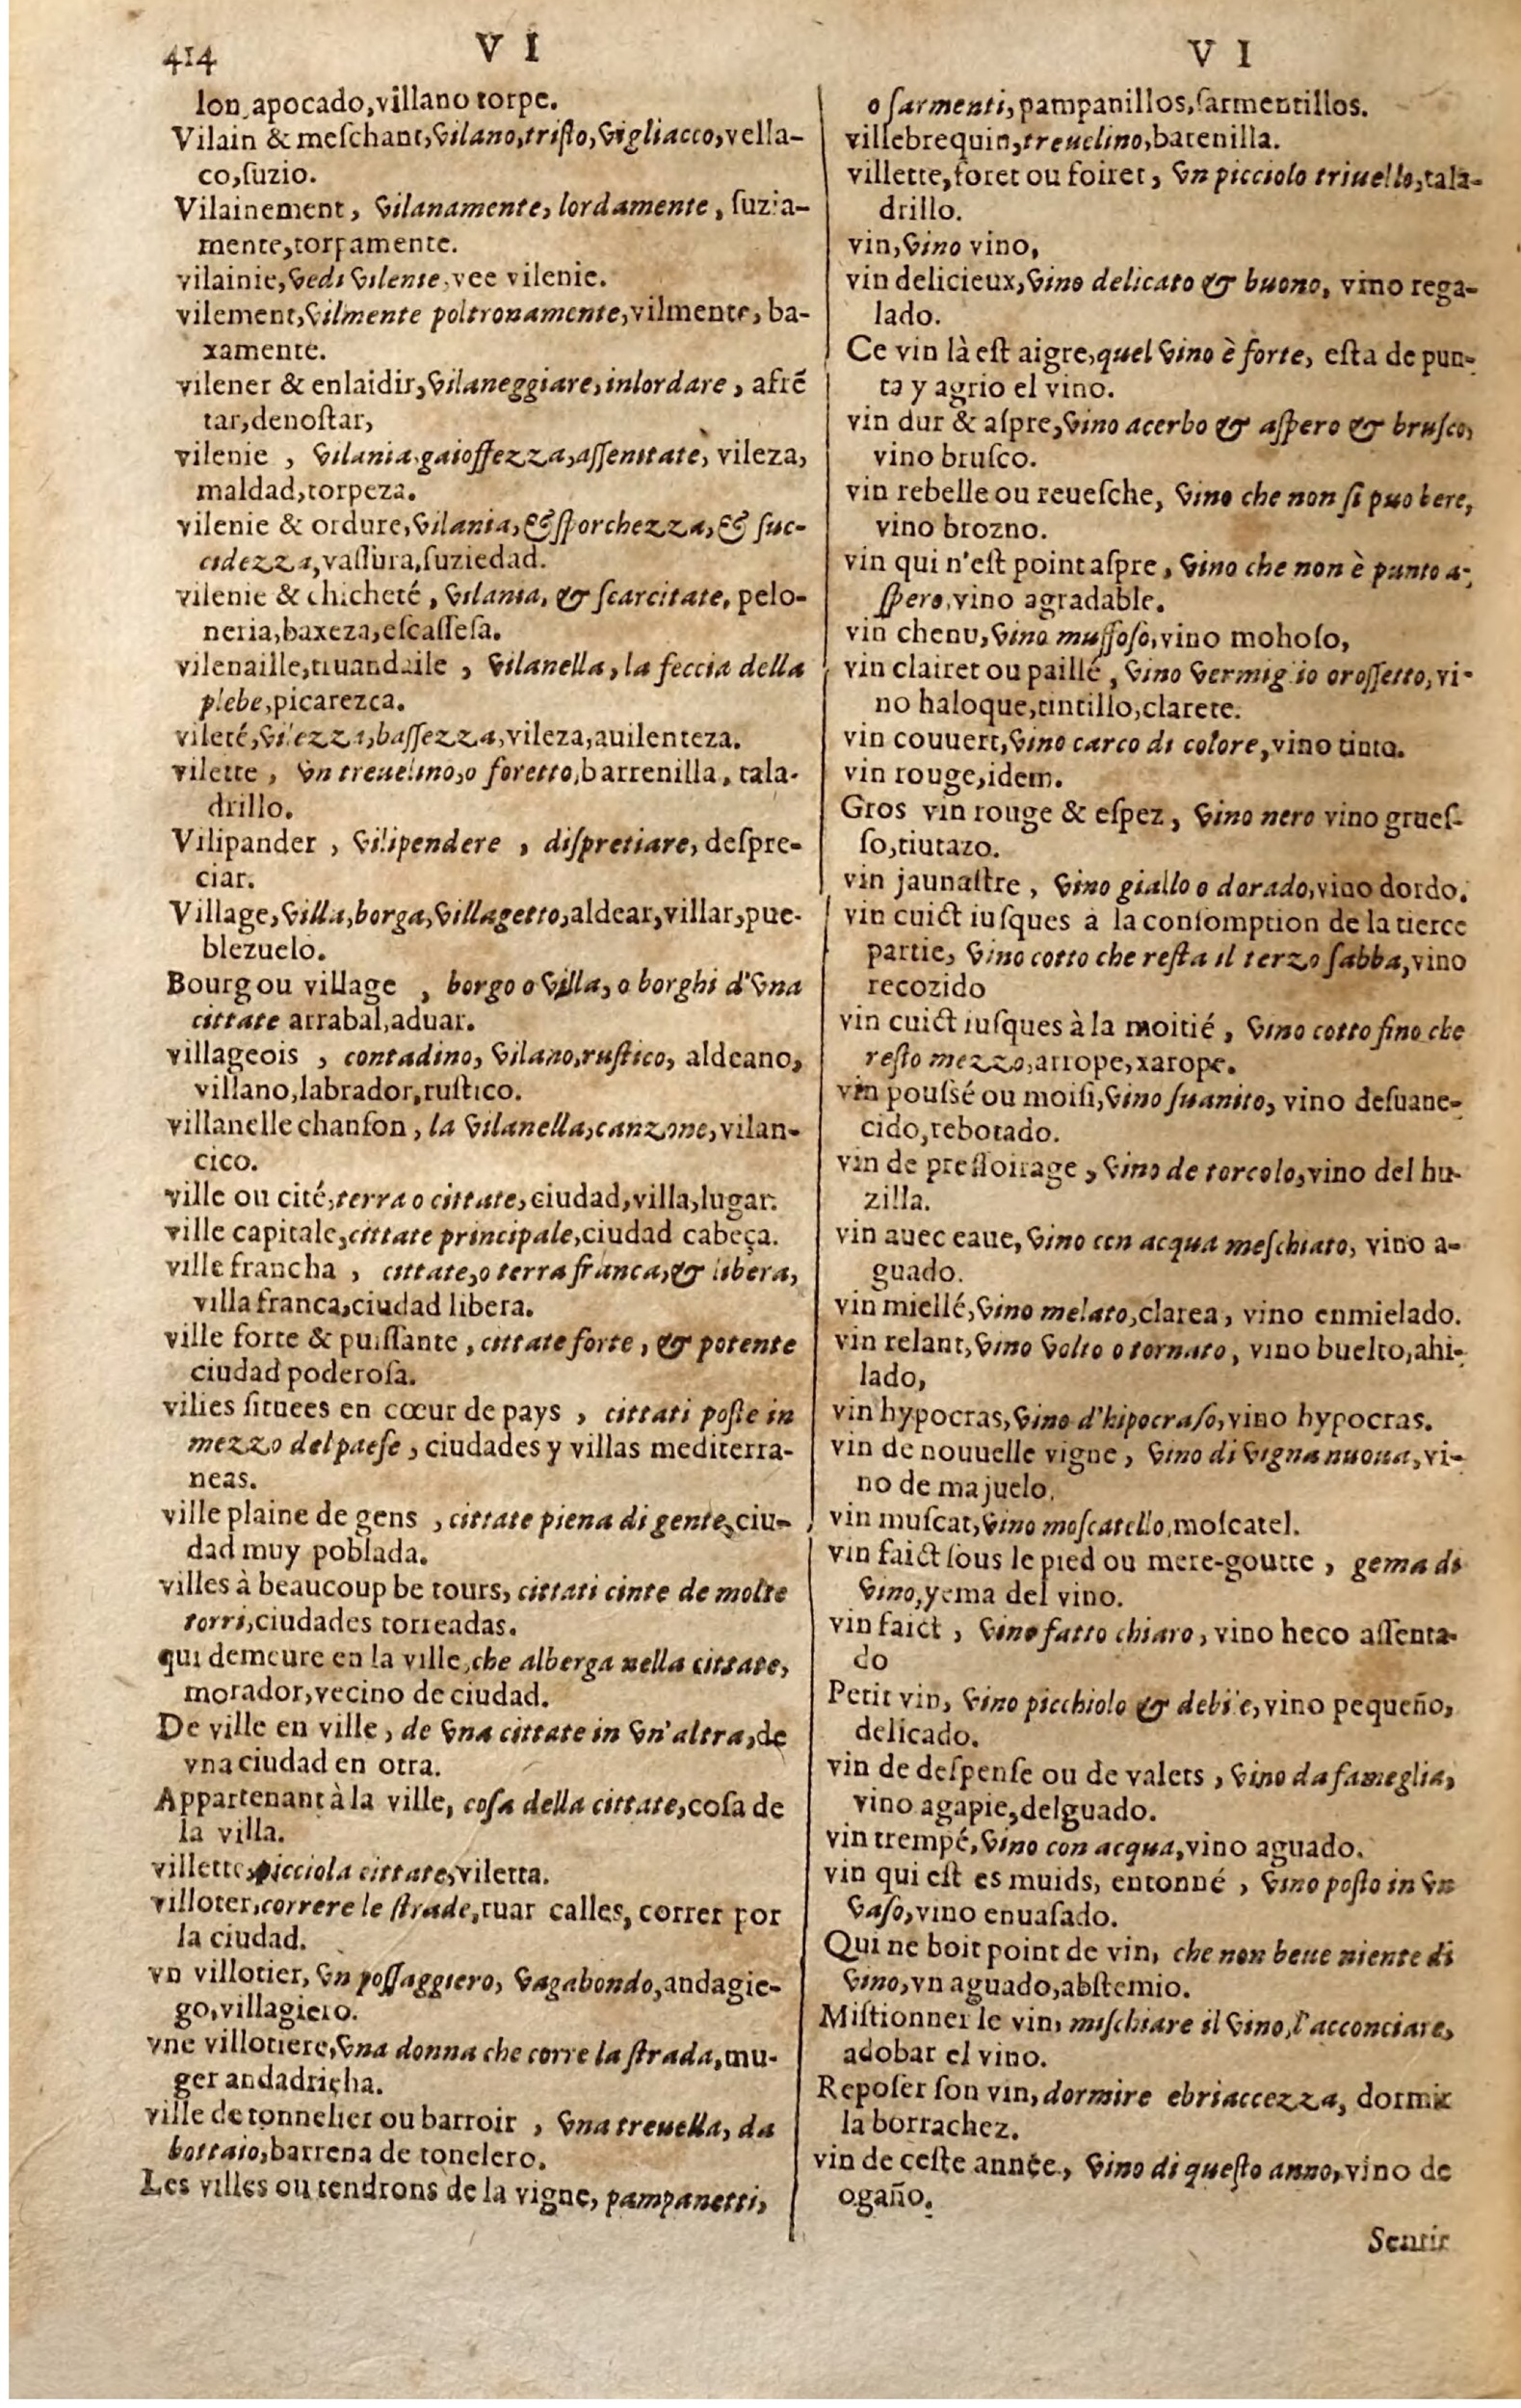 414
V I
lon, apocado, villano torpe.
Vilain & meſchant, vilano, triſto, vigliacco, vella-
co, ſuzio.
Vilainement, vilanamente, lordamente, ſuzia-
mente, torpamente.
vilainie, vedi vilenie, vee vilenie.
vilement, vilmente poltronamente, vilmente, ba-
xamente.
vilener & enlaidir, vilaneggiare, inlordare, afrē
tar, denoſtar,
vilenie, vilania, gaioffezza, aſſenitate, vileza,
maldad, torpeza.
vilenie & ordure, vilania, & ſporchezza, & ſuc-
cidezza, vaſſura, ſuziedad.
vilenie & chicheté, vilania, & ſcarcitate, pelo-
neria, baxeza, eſcaſſeſa.
vilenaille, truandaile, vilanella, la feccia della
plebe, picarezca.
vileté, vilezza, baſſezza, vileza, auilenteza.
vilette, vn treuelino, o foretto, barrenilla, tala-
drillo.
Vilipander, vilipendere, diſpretiare, deſpre-
ciar.
Village, villa, borga, villagetto, aldear, villar, pue-
blezuelo.
Bourg ou village, borgo o villa, o borghi d'vna
cittate arrabal, aduar.
villageois, contadino, vilano, ruſtico, aldeano,
villano, labrador, ruſtico.
villanelle chanſon, la vilanella, canzone, vilan-
cico.
ville ou cité, terra o cittate, ciudad, villa, lugar.
ville capitale, cittate principale, ciudad cabeça.
ville francha, cittate, o terra franca, & libera,
villa franca, ciudad libera.
ville forte & puiſſante, cittate forte, & potente
ciudad poderoſa.
villes ſituees en cœur de pays, cittati poſte in
mezzo del paeſe, ciudades y villas mediterra-
neas.
ville plaine de gens, cittate piena di gente, ciu-
dad muy poblada.
villes à beaucoup be tours, cittati cinte de molte
torri, ciudades torreadas.
qui demeure en la ville, che alberga nella cittate,
morador, vecino de ciudad.
De ville en ville, de vna cittate in vn'altra, de
vna ciudad en otra.
Appartenant à la ville, coſa della cittate, coſa de
la villa.
villette, picciola cittate, viletta.
villoter, correre le ſtrade, ruar calles, correr por
la ciudad.
vn villotier, vn poſſaggiero, vagabondo, andagie-
go, villagiero.
vne villotiere, vna donna che corre la ſtrada, mu-
ger andadricha.
ville de tonnelier ou barroir, vna treuella, da
bottaio, barrena de tonelero.
Les villes ou tendrons de la vigne, pampanetti,
V I
o ſarmenti, pampanillos, ſarmentillos.
villebrequin, treuelino, barenilla.
villette, foret ou foiret, vn picciolo triuello, tala-
drillo.
vin, vino vino,
vin delicieux, vino delicato & buono, vino rega-
lado.
Ce vin là eſt aigre, quel vino è forte, eſta de pun-
ta y agrio el vino.
vin dur & aſpre, vino acerbo & aſpero & bruſco,
vino bruſco.
vin rebelle ou reueſche, vino che non ſi puo bere,
vino brozno.
vin qui n'eſt point aſpre, vino che non è punto a-
ſpero, vino agradable.
vin chenu, vino muſſoſo, vino mohoſo,
vin clairet ou paillé, vino vermiglio oroſſetto, vi-
no haloque, tintillo, clarete.
vin couuert, vino carco di colore, vino tinto.
vin rouge, idem.
Gros vin rouge & eſpez, vino nero vino grueſ-
ſo, tiutazo.
vin jaunaſtre, vino giallo o dorado, vino dordo.
vin cuict iuſques à la conſomption de la tierce
partie, vino cotto che reſta il terzo ſabba, vino
recozido
vin cuict iuſques à la moitié, vino cotto fino che
reſto mezzo, arrope, xarope.
vin pouſsé ou moiſi, vino ſuanito, vino deſuane-
cido, rebotado.
vin de preſſoirage, vino de torcolo, vino del hu-
zilla.
vin auec eaue, vino con acqua meſchiato, vino a-
guado.
vin miellé, vino melato, clarea, vino enmielado.
vin relant, vino volto o tornato, vino buelto, ahi-
lado,
vin hypocras, vino d'hipocraſo, vino hypocras.
vin de nouuelle vigne, vino di vigna nuoua, vi-
no de majuelo.
vin muſcat, vino moſcatello, moſcatel.
vin faict ſous le pied ou mere-goutte, gema di
vino, yema del vino.
vin faict, vino fatto chiaro, vino heco aſſenta-
do
Petit vin, vino picchiolo & debile, vino pequeño,
delicado.
vin de deſpenſe ou de valets, vino da fameglia,
vino agapie, delguado.
vin trempé, vino con acqua, vino aguado.
vin qui eſt es muids, entonné, vino poſto in vn
vaſo, vino enuaſado.
Qui ne boit point de vin, che non beue niente di
vino, vn aguado, abſtemio.
Miſtionner le vin, miſchiare il vino, l'acconciare,
adobar el vino.
Repoſer ſon vin, dormire ebriaccezza, dormir
la borrachez.
vin de ceſte annęe, vino di queſto anno, vino de
ogaño.
Sentir